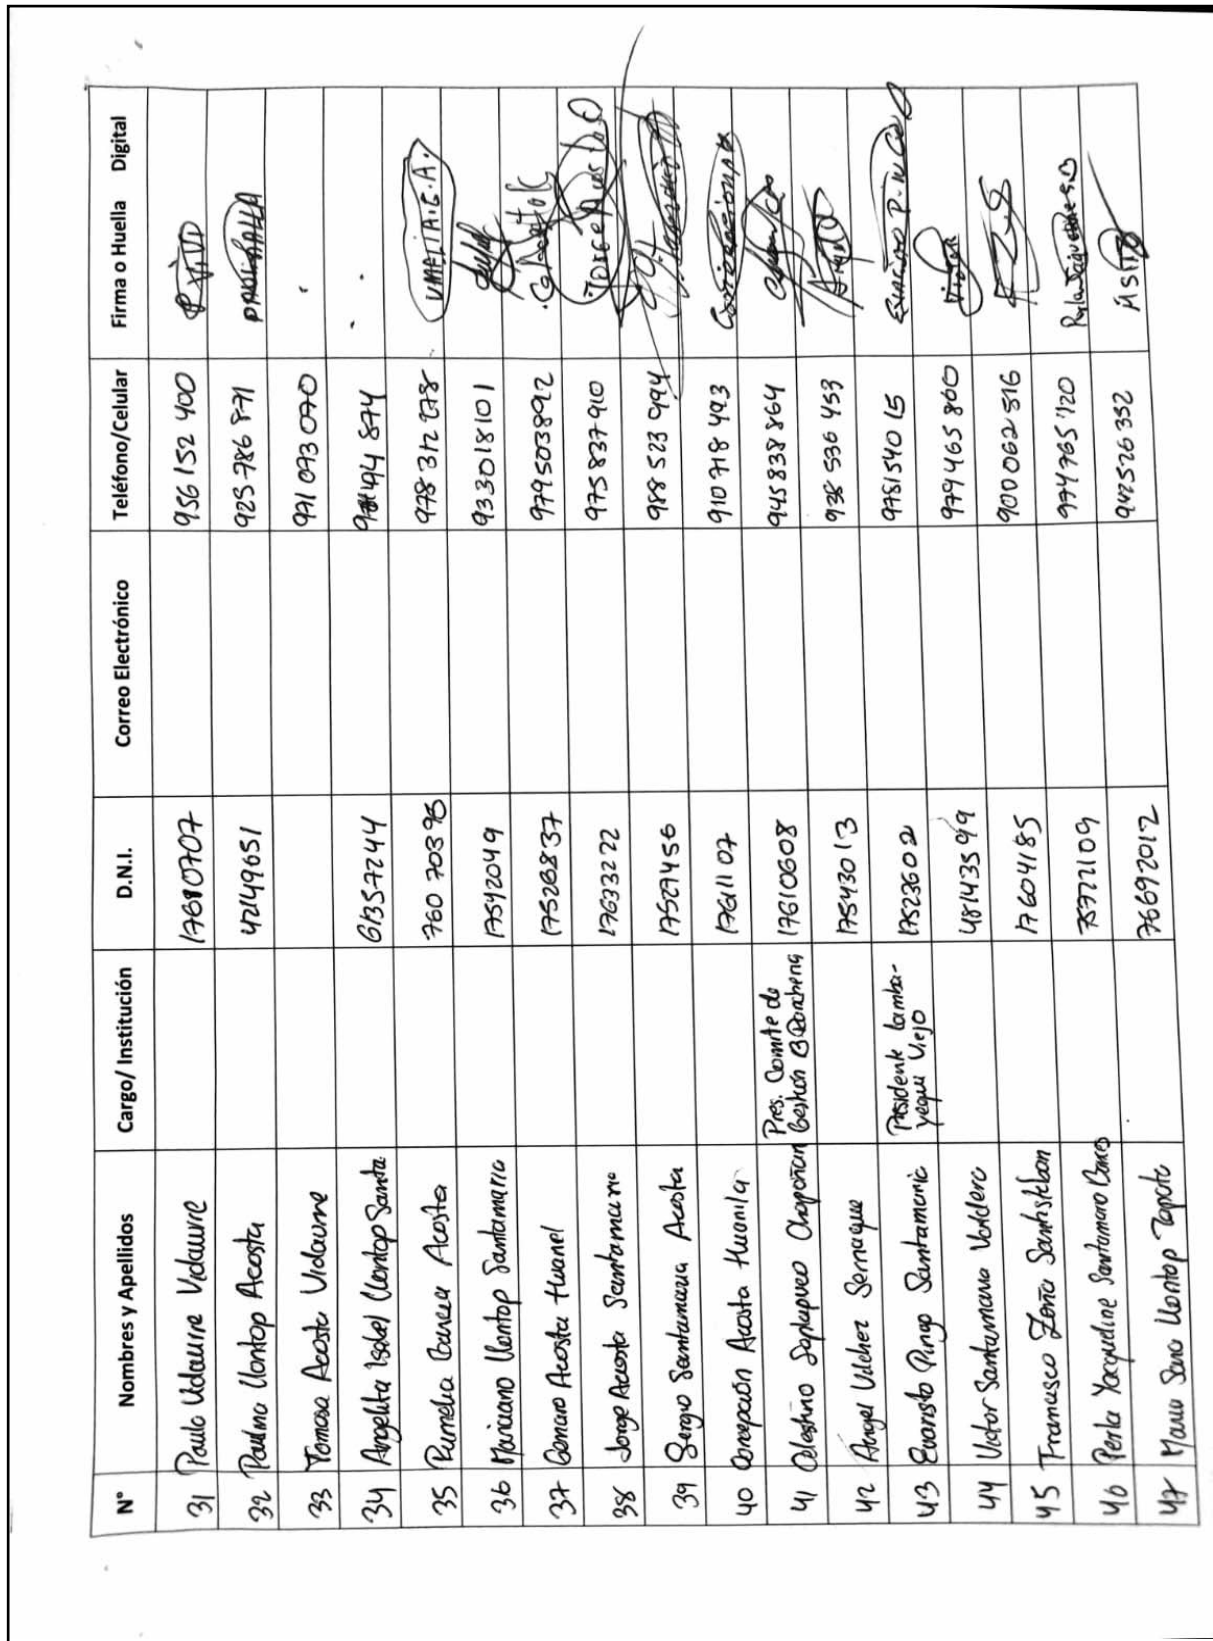 N° Nombres y Apellidos Cargo/ Institución D.N.I. Correo Electrónico Teléfono/Celular Firma o Huella Digital
31 Paula Vidaurre Vidaurre 17610707 956 152 400
32 Paulina Llontop Acosta 42149651 925 786 871
33 Tomasa Acosta Vidaurre 971 073 070
34 Angelita Isabel Llontop Santa 61357244 494 874
35 Rumelia Acosta 760 70395 978 312 278
36 Mariano Llontop Santamaria 17542049 933018101
37 Genaro Acosta Huanel 17526837 979503892
38 Jorge Acosta Santamaria 17633222 975 837 910 Jorge
39 Sergio Santamaria Acosta 17527456 988 523 994
40 Concepción Acosta Huanila 17611107 910 718 493
41 Celestino Saplupuco Chapoñan Pres. Comite de 17610608 945 838 864
Gestión
42 Angel Vilchez Sernaque 17543013 938 536 453
43 Evaristo Pingo Santamaria Presidente Lamba- 17523602 978154015
yeque Viejo
44 Victor Santamaria Valdera 48143599 979 465 860 Victor
45 Francisco Zeña Santisteban 17604185 900 062 516
46 Perla Yacqueline Santamaria 75772109 974 765 720
47 Llontop Zapata 76692012 942526352